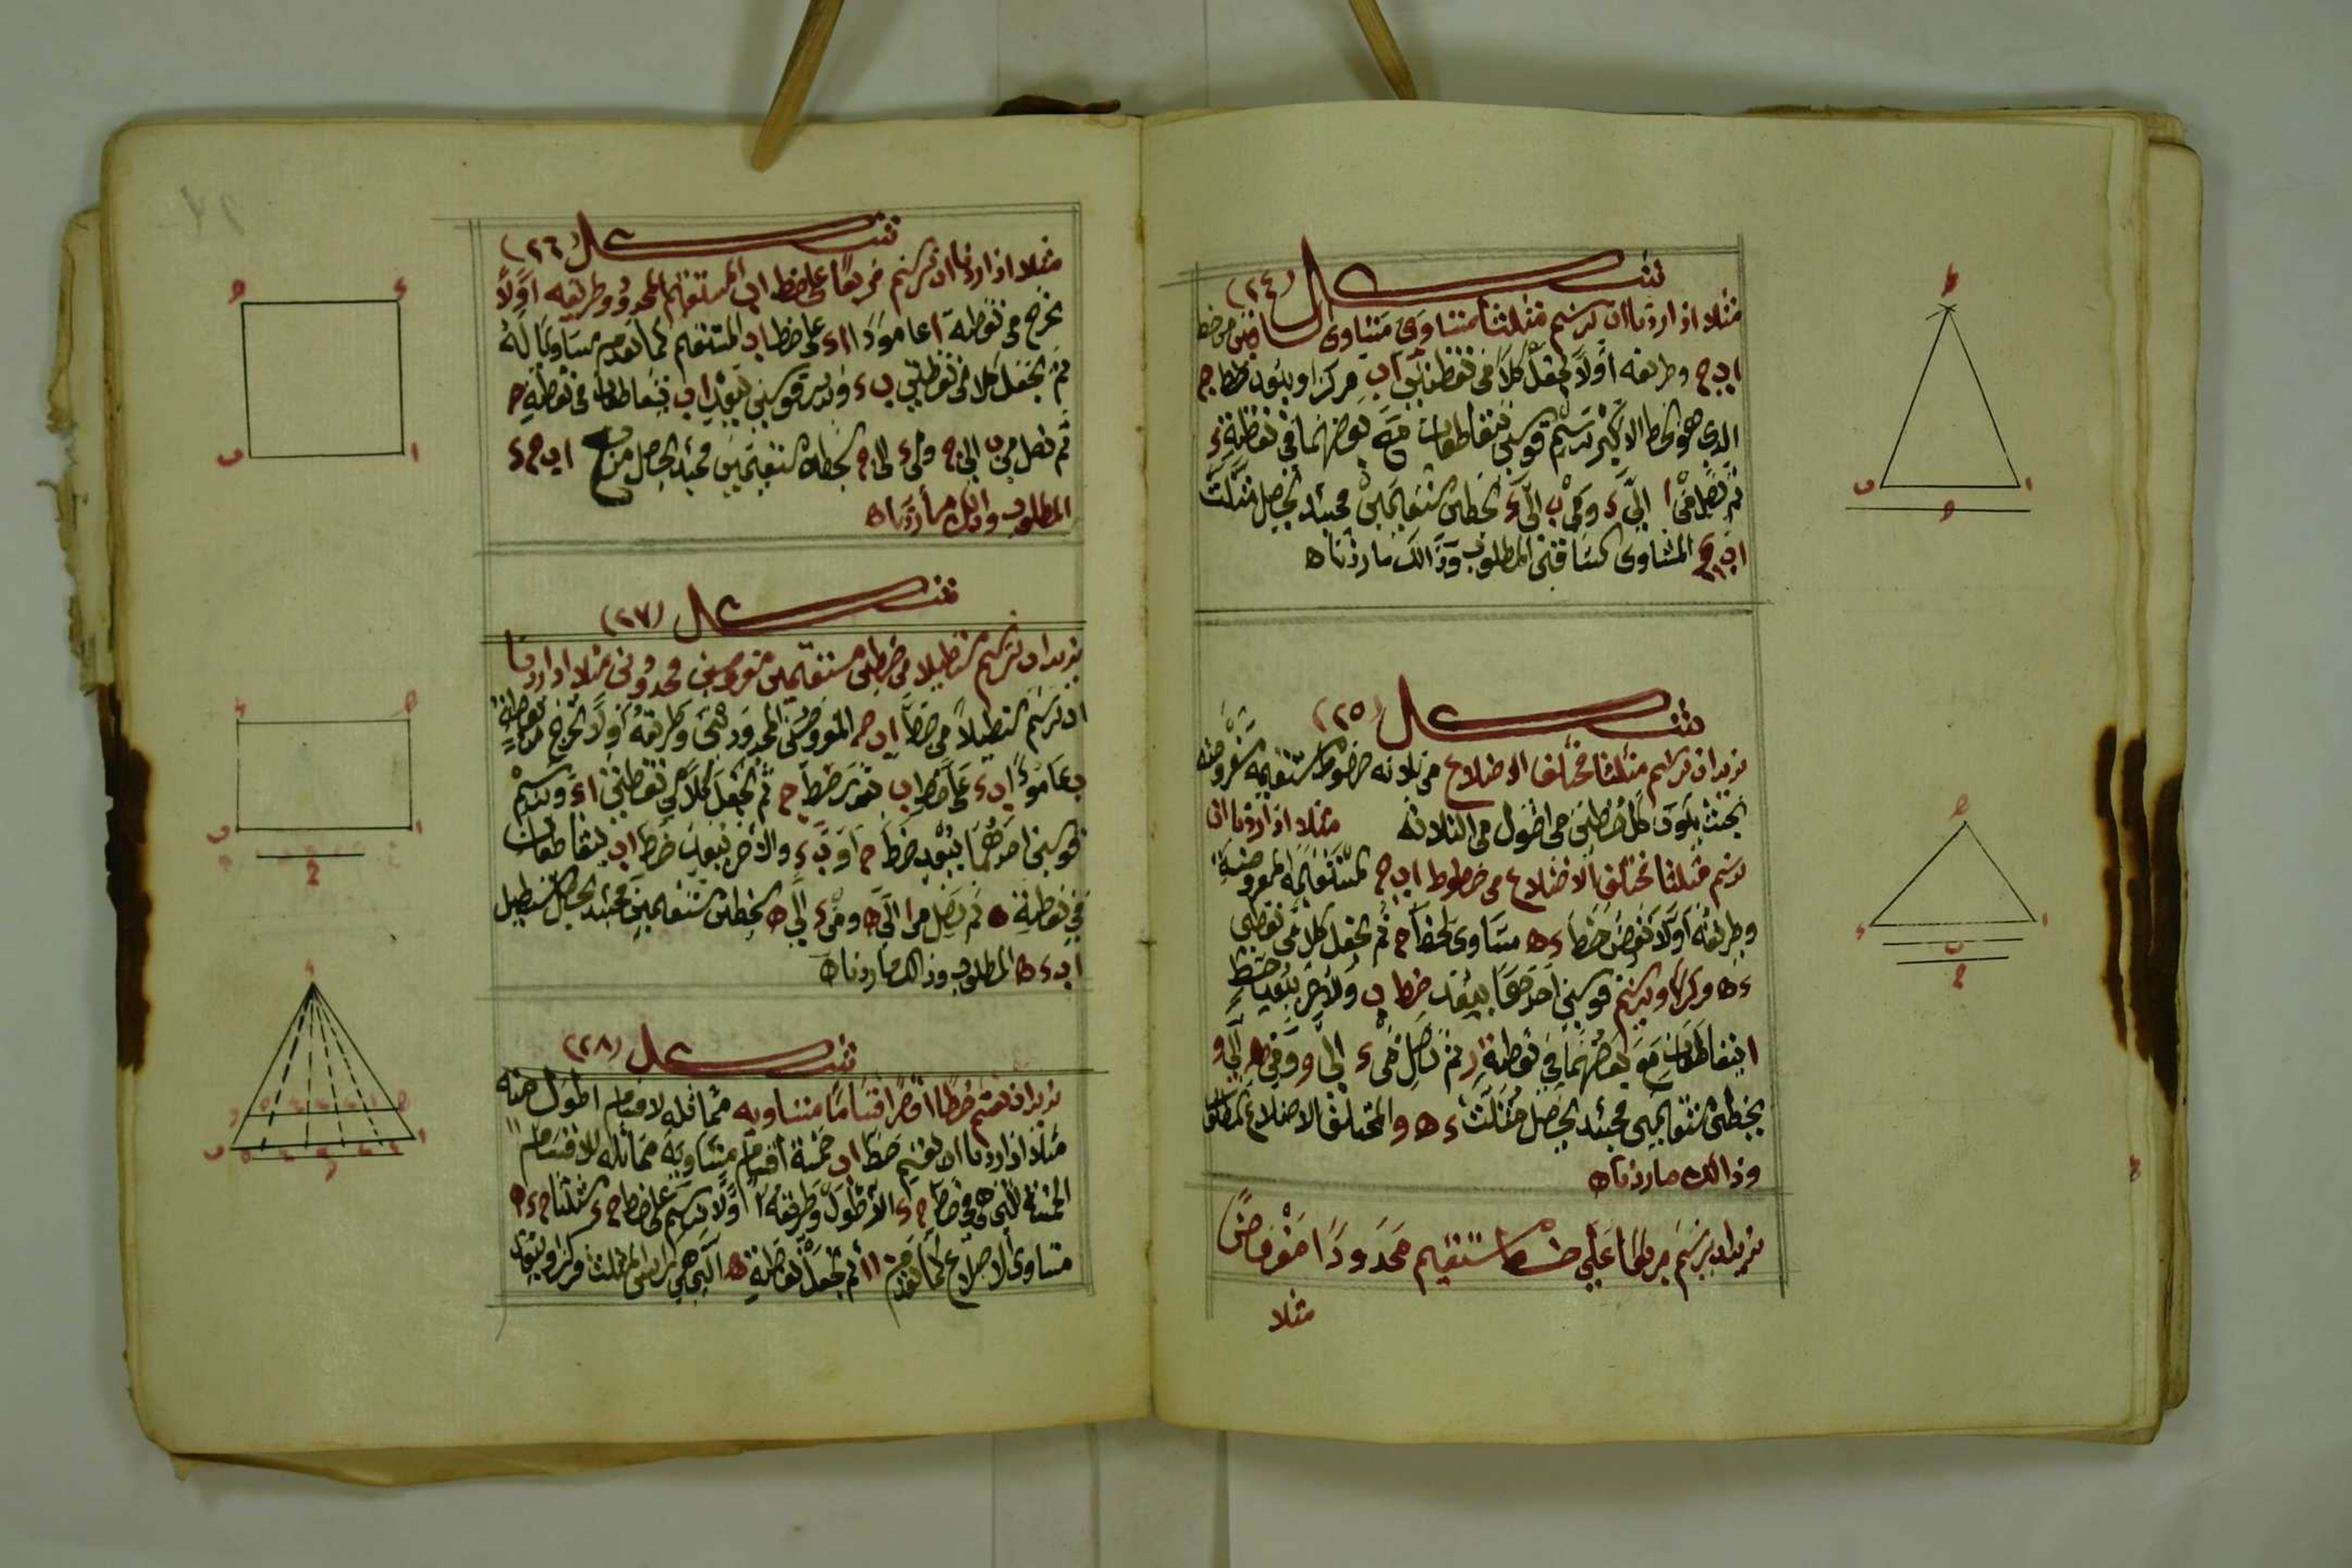 شكل (٢٤)
مثلا اذا اردنا ان نرسم مثلثا متساوى الساقين من خط
ا ب ج وطريقه أولاً نجعل كلاً من نقطتين ا ب مركزا وببُعد خط ج
الدى هو الخط الاكبر نرسم قوسين يتقاطعان مع بعضهما فى نقطة ء
ثم نصل من ا الى ء ومن ب الى ء بخطين مستقيمين فحينئد يحصل مثلث
ا ب ج المتساوى الساقين المطلوب وذالك ما اردناه
شكل (٢٥)
نريد ان نرسم مثلثا مختلف الاضلاع من ثلاثه خطوط مستقيمه مفروضه
بحيث يكون كل خطين من اطول من الثلاثه مثلا اذا اردنا ان
نرسم مثلثا مختلف الاضلاع من خطوط ا ب ج المستقيمه المفروضة
وطريقه أولا نفرض خط ء ه مساوى لخط ج ثم نجعل كلا من نقطتى
ء ه مركزا ونرسم قوسين احدهما ببعد خط ب والاخر ببعد خط
ا يتقاطعان مع بعضهما فى نقطة و ثم نصل من ء الى و ومن ه الى و
بخطين مستقيمين فحينئد يحصل مثلث ء ه و المختلف الاضلاع المطلوب
وذالك ما اردناه
نريد ان نرسم مربعا على خط مستقيم محدودا مفروضاً
مثلا
شكل (٢٦)
مثلا اذا اردنا ان نرسم مربعا على خط ا ب المستقيم المحدود وطريقه أولاً
نخرج من نقطة ا عامودا ا ء على خط ا ب المستقيم كما تقدم مساويا له
ثم نجعل كلا من نقطتى ب ء وندير قوسين ببعد ا ب يتقاطعان فى نقطة ج
ثم نصل من ب الى ج ومن ء الى ج بخطين مستقيمين فحينئد يحصل مربع ا ب ج ء
المطلوب وذالك ما اردناه
شكل (٢٧)
نريد ان نرسم مستطيلا من خطين مستقيمين مفروضين محدودين مثلا اذا اردنا
ان نرسم مستطيلاً من خط ا ب ج المفروضين المحدودين وطريقه أولا نخرج من نقطة
ب عامود ا ب ء على خط ا ب بقدر خط ج ثم نجعل كلا من نقطتى ا ء ونرسم
قوسين احدهما ببعد خط ج او ب ء والاخر ببعد خط ا ب يتقاطعان
فى نقطة ه ثم نصل من ا الى ه ومن ء الى ه بخطين مستقيمين فحينئد يحصل مستطيل
ا ب ء ه المطلوب وذالك ما اردناه
شكل (٢٨)
نريد ان نقسم خطا اقصر اقساما متساويه مماثله لاقسام اطول منه
مثلا اذا اردنا ان نقسم خط ا ب خمسة أقسام متساوية مماثله للاقسام
الخمسة التى هى فى خط ج ء الاطول وطريقه أولا نرسم على خط ج ء مثلثا ج ء ه
متساوى الاضلاع كما تقدم ثم نجعل نقطة ه التى هى راس المثلث مركزا وببعد